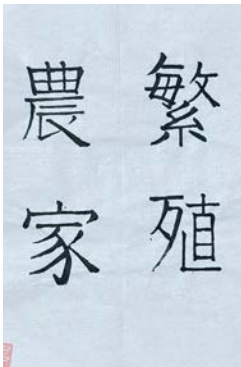 繁殖
農家